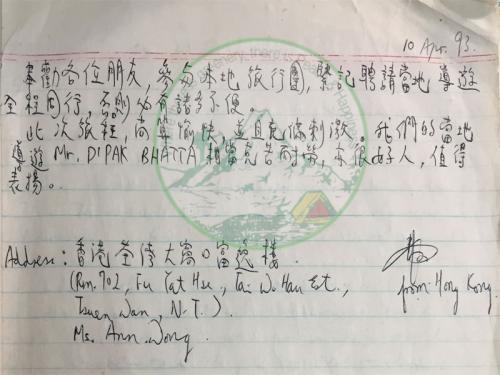 10 Apr. 93.
奉勸各位朋友, 參加味地旅行團, 緊記聘請當地導遊
全程同行, 否則必有諸多不便。
此次旅程, 尚算愉快, 並且充滿刺激。我們的當地
導遊 Mr. DIPAK BHATTA 相當克苦耐勞, 亦很好人, 值得
表揚。
Address: 香港荃灣大窩口富逸樓.
(Rm. 702, Fu Yat Hse., Tai Wo Hau Est.,
Tsuen Wan, N.T.).
Ms. Ann Wong.
from: Hong Kong